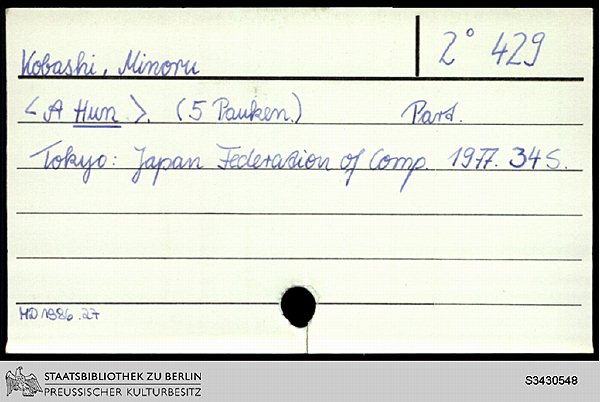 Kobashi, Minoru
2° 429
< A Hun >. (5 Pauken.) Part.
Tokyo: Japan Federation of Comp. 1977. 34 S.
MD 1986.27
STAATSBIBLIOTHEK ZU BERLIN
PREUSSISCHER KULTURBESITZ
S3430548